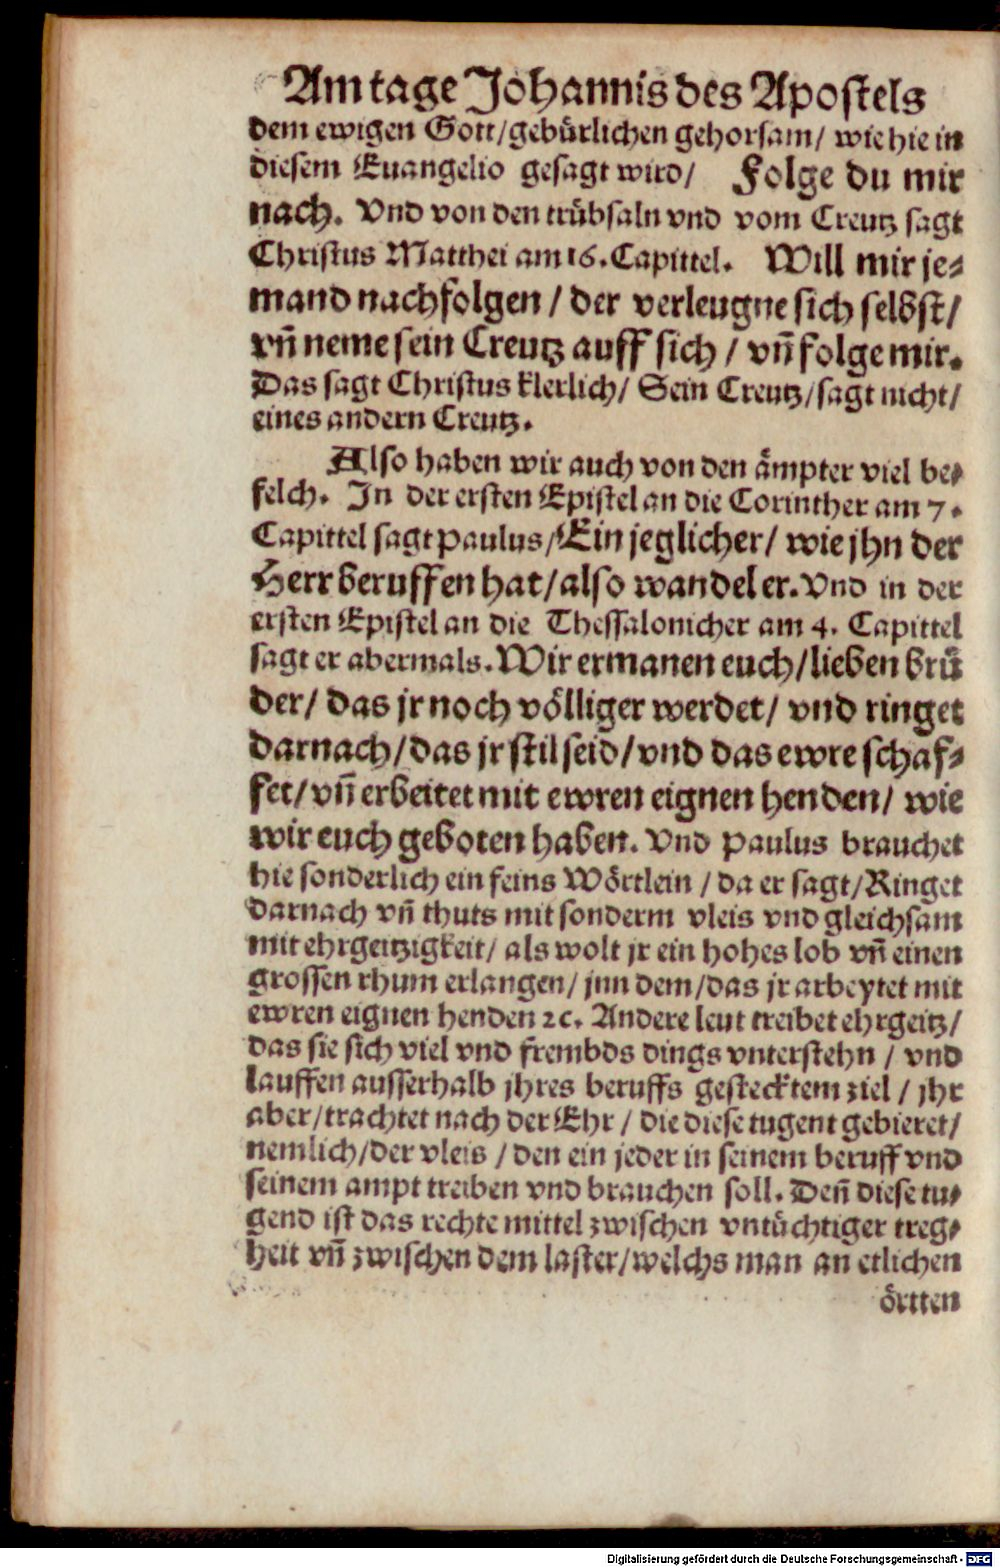 Am tage Johannis des Apostels
dem ewigen Gott/gebürlichen gehorsam/ wie hie in
diesem Euangelio gesagt wird/ Folge du mir
nach. Vnd von den trübsaln vnd vom Creutz sagt
Christus Matthei am 16. Capittel. Will mir je⸗
mand nachfolgen / der verleugne sich selbst/
vñ neme sein Creutz auff sich / vñ folge mir.
Das sagt Christus klerlich/ Sein Creutz/sagt nicht/
eines andern Creutz.
Also haben wir auch von den ämpter viel be⸗
felch. In der ersten Epistel an die Corinther am 7.
Capittel sagt Paulus/Ein jeglicher/ wie jhn der
Herr beruffen hat/also wandel er. Vnd in der
ersten Epistel an die Thessalonicher am 4. Capittel
sagt er abermals. Wir ermanen euch/lieben brü
der/ das jr noch völliger werdet/ vnd ringet
darnach/das jr stil seid/vnd das ewre schaf⸗
fet/vñ erbeitet mit ewren eignen henden/ wie
wir euch geboten haben. Vnd Paulus brauchet
hie sonderlich ein feins Wörtlein / da er sagt/Ringet
darnach vñ thuts mit sonderm vleis vnd gleichsam
mit ehrgeitzigkeit/ als wolt jr ein hohes lob vñ einen
grossen rhum erlangen/ jnn dem/das jr arbeytet mit
ewren eignen henden ꝛc. Andere leut treibet ehrgeitz/
das sie sich viel vnd frembds dings vnterstehn / vnd
lauffen ausserhalb jhres beruffs gestecktem ziel / jhr
aber/trachtet nach der Ehr / die diese tugent gebieret/
nemlich/der vleis / den ein jeder in seinem beruff vnd
seinem ampt treiben vnd brauchen soll. Deñ diese tu⸗
gend ist das rechte mittel zwischen vntüchtiger treg⸗
heit vñ zwischen dem laster/welchs man an etlichen
örtten
Digitalisierung gefördert durch die Deutsche Forschungsgemeinschaft - DFG